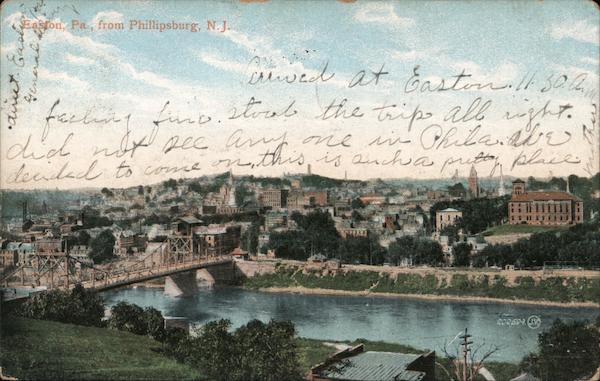 Easton, Pa., from Phillipsburg, N.J.
Arrived at Easton 11.30 A.M.
feeling fine stood the trip all right.
did not see any one in Phila. and we
decided to come on, this is such a pretty place
Aunt